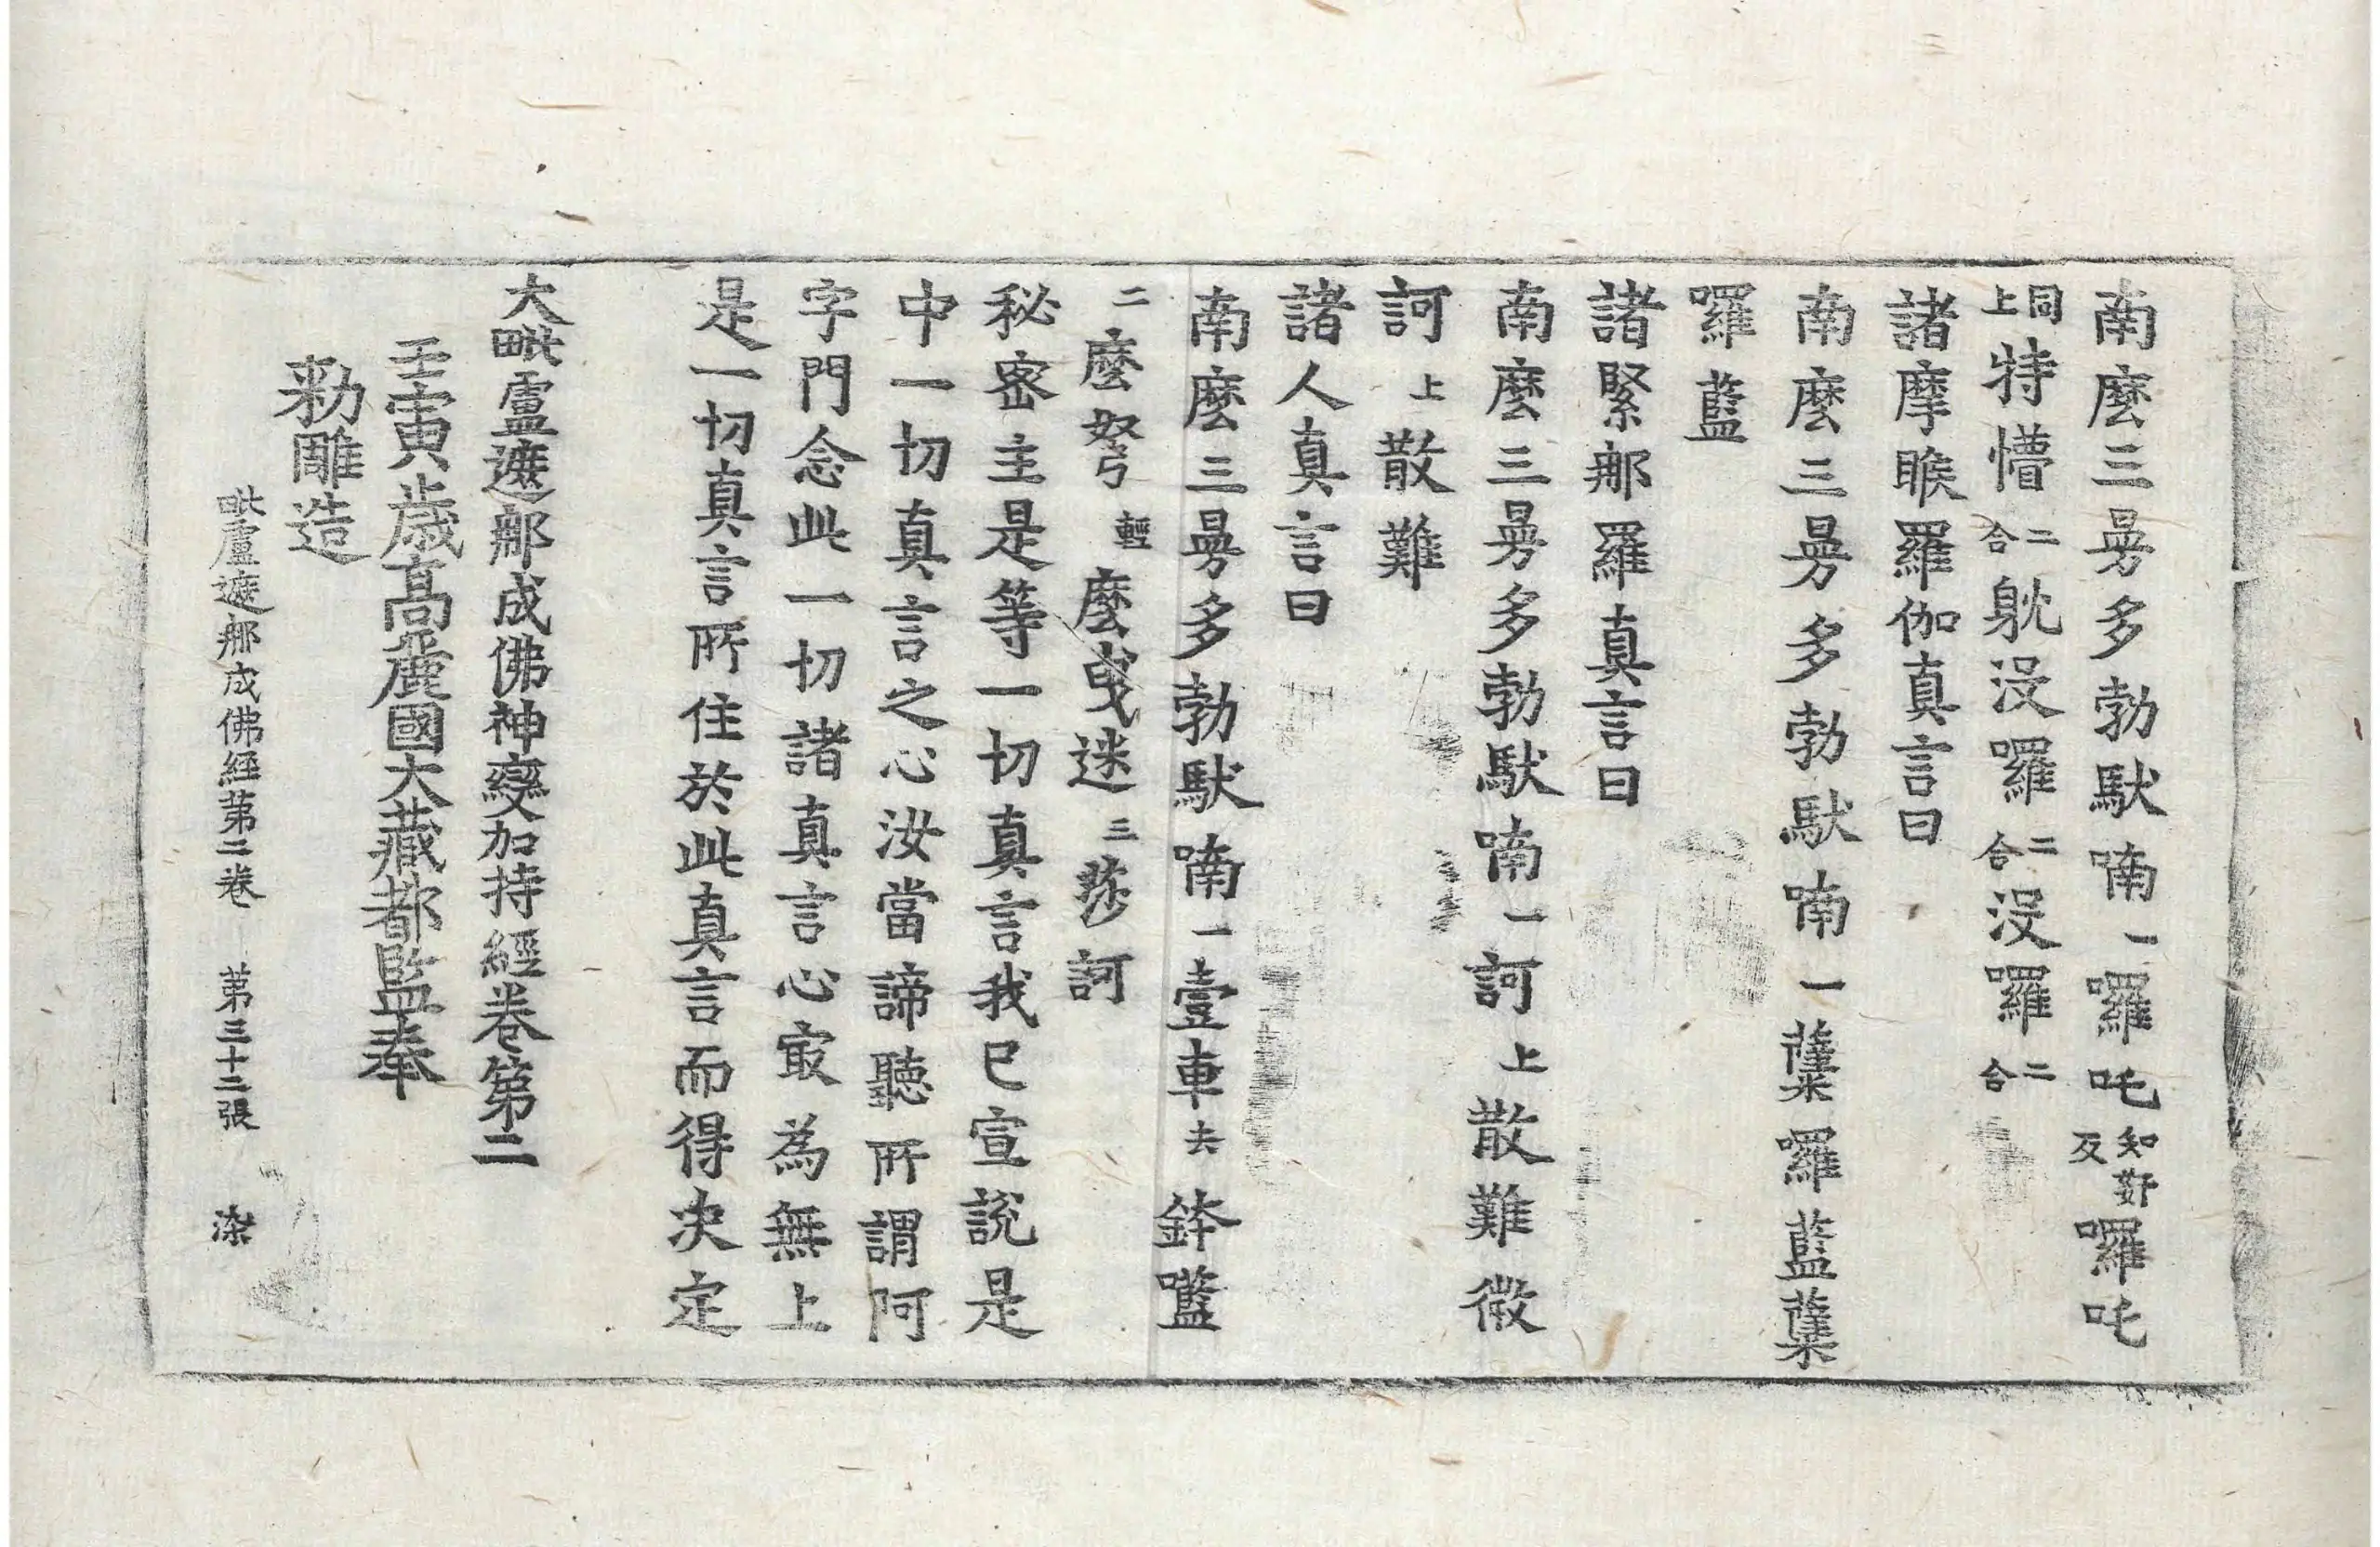 南麽三曼多勃馱喃一囉吒知嫁反囉吒
同上特懵二合躭沒囉二合沒囉二合
諸摩睺羅伽真言曰
南麽三曼多勃馱喃一蘖囉藍蘖
囉藍
諸緊那羅真言曰
南麽三曼多勃馱喃一訶上散難微
訶上散難
諸人真言曰
南麽三曼多勃馱喃一壹車去鉢㘕
二麽弩輕麽曳迷三莎訶
秘密主是等一切真言我已宣說是
中一切真言之心汝當諦聽所謂阿
字門念此一切諸真言心㝡為無上
是一切真言所住於此真言而得决定
大毗盧遮那成佛神變加持經卷第二
壬寅歲高麗國大藏都監奉
勑雕造
毗盧遮那成佛經第二卷 第三十二張